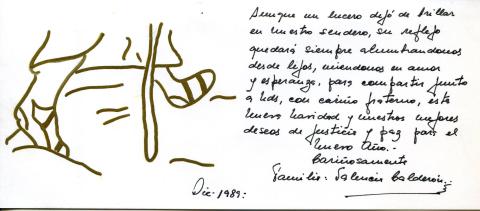 Aunque un lucero dejó de brillar
en nuestro sendero, su reflejo
quedará siempre alumbrandonos
desde lejos, uniendonos en amor
y esperanza, para compartir junto
a Uds, con cariño fraterno, esta
nueva Navidad y nuestros mejores
deseos de Justicia y paz para el
Nuevo Año.-
Cariñosamente
Familia: Valencia Calderón.-
Dic- 1989: